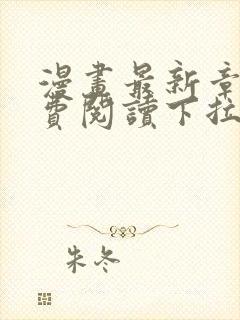 漫畫最新章
費閱讀下拉
朱冬